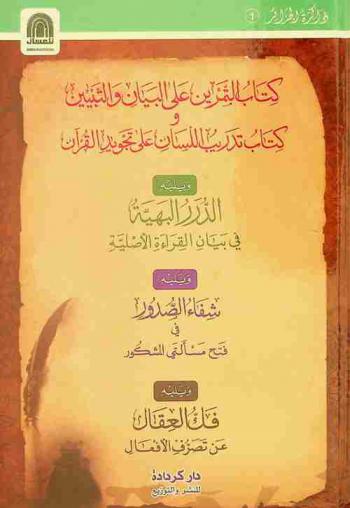 ذاكرة الجزائر 1
كتاب التمرين على البيان والتبيين
و
كتاب تدريب اللسان على تجويد القرآن
ويليه
الدُّرَرُ البَهِيَّة
فِي بَيَانِ القِرَاءَةِ الأَصْلِيَّة
ويليه
شِفَاءُ الصُّدُور
في
فَتْح مَسْأَلَتَي المَشْكُور
ويليه
فَكُّ العِقَال
عَنْ تَصَرُّفِ الأَفْعَال
دار كردادة
للنشر والتوزيع